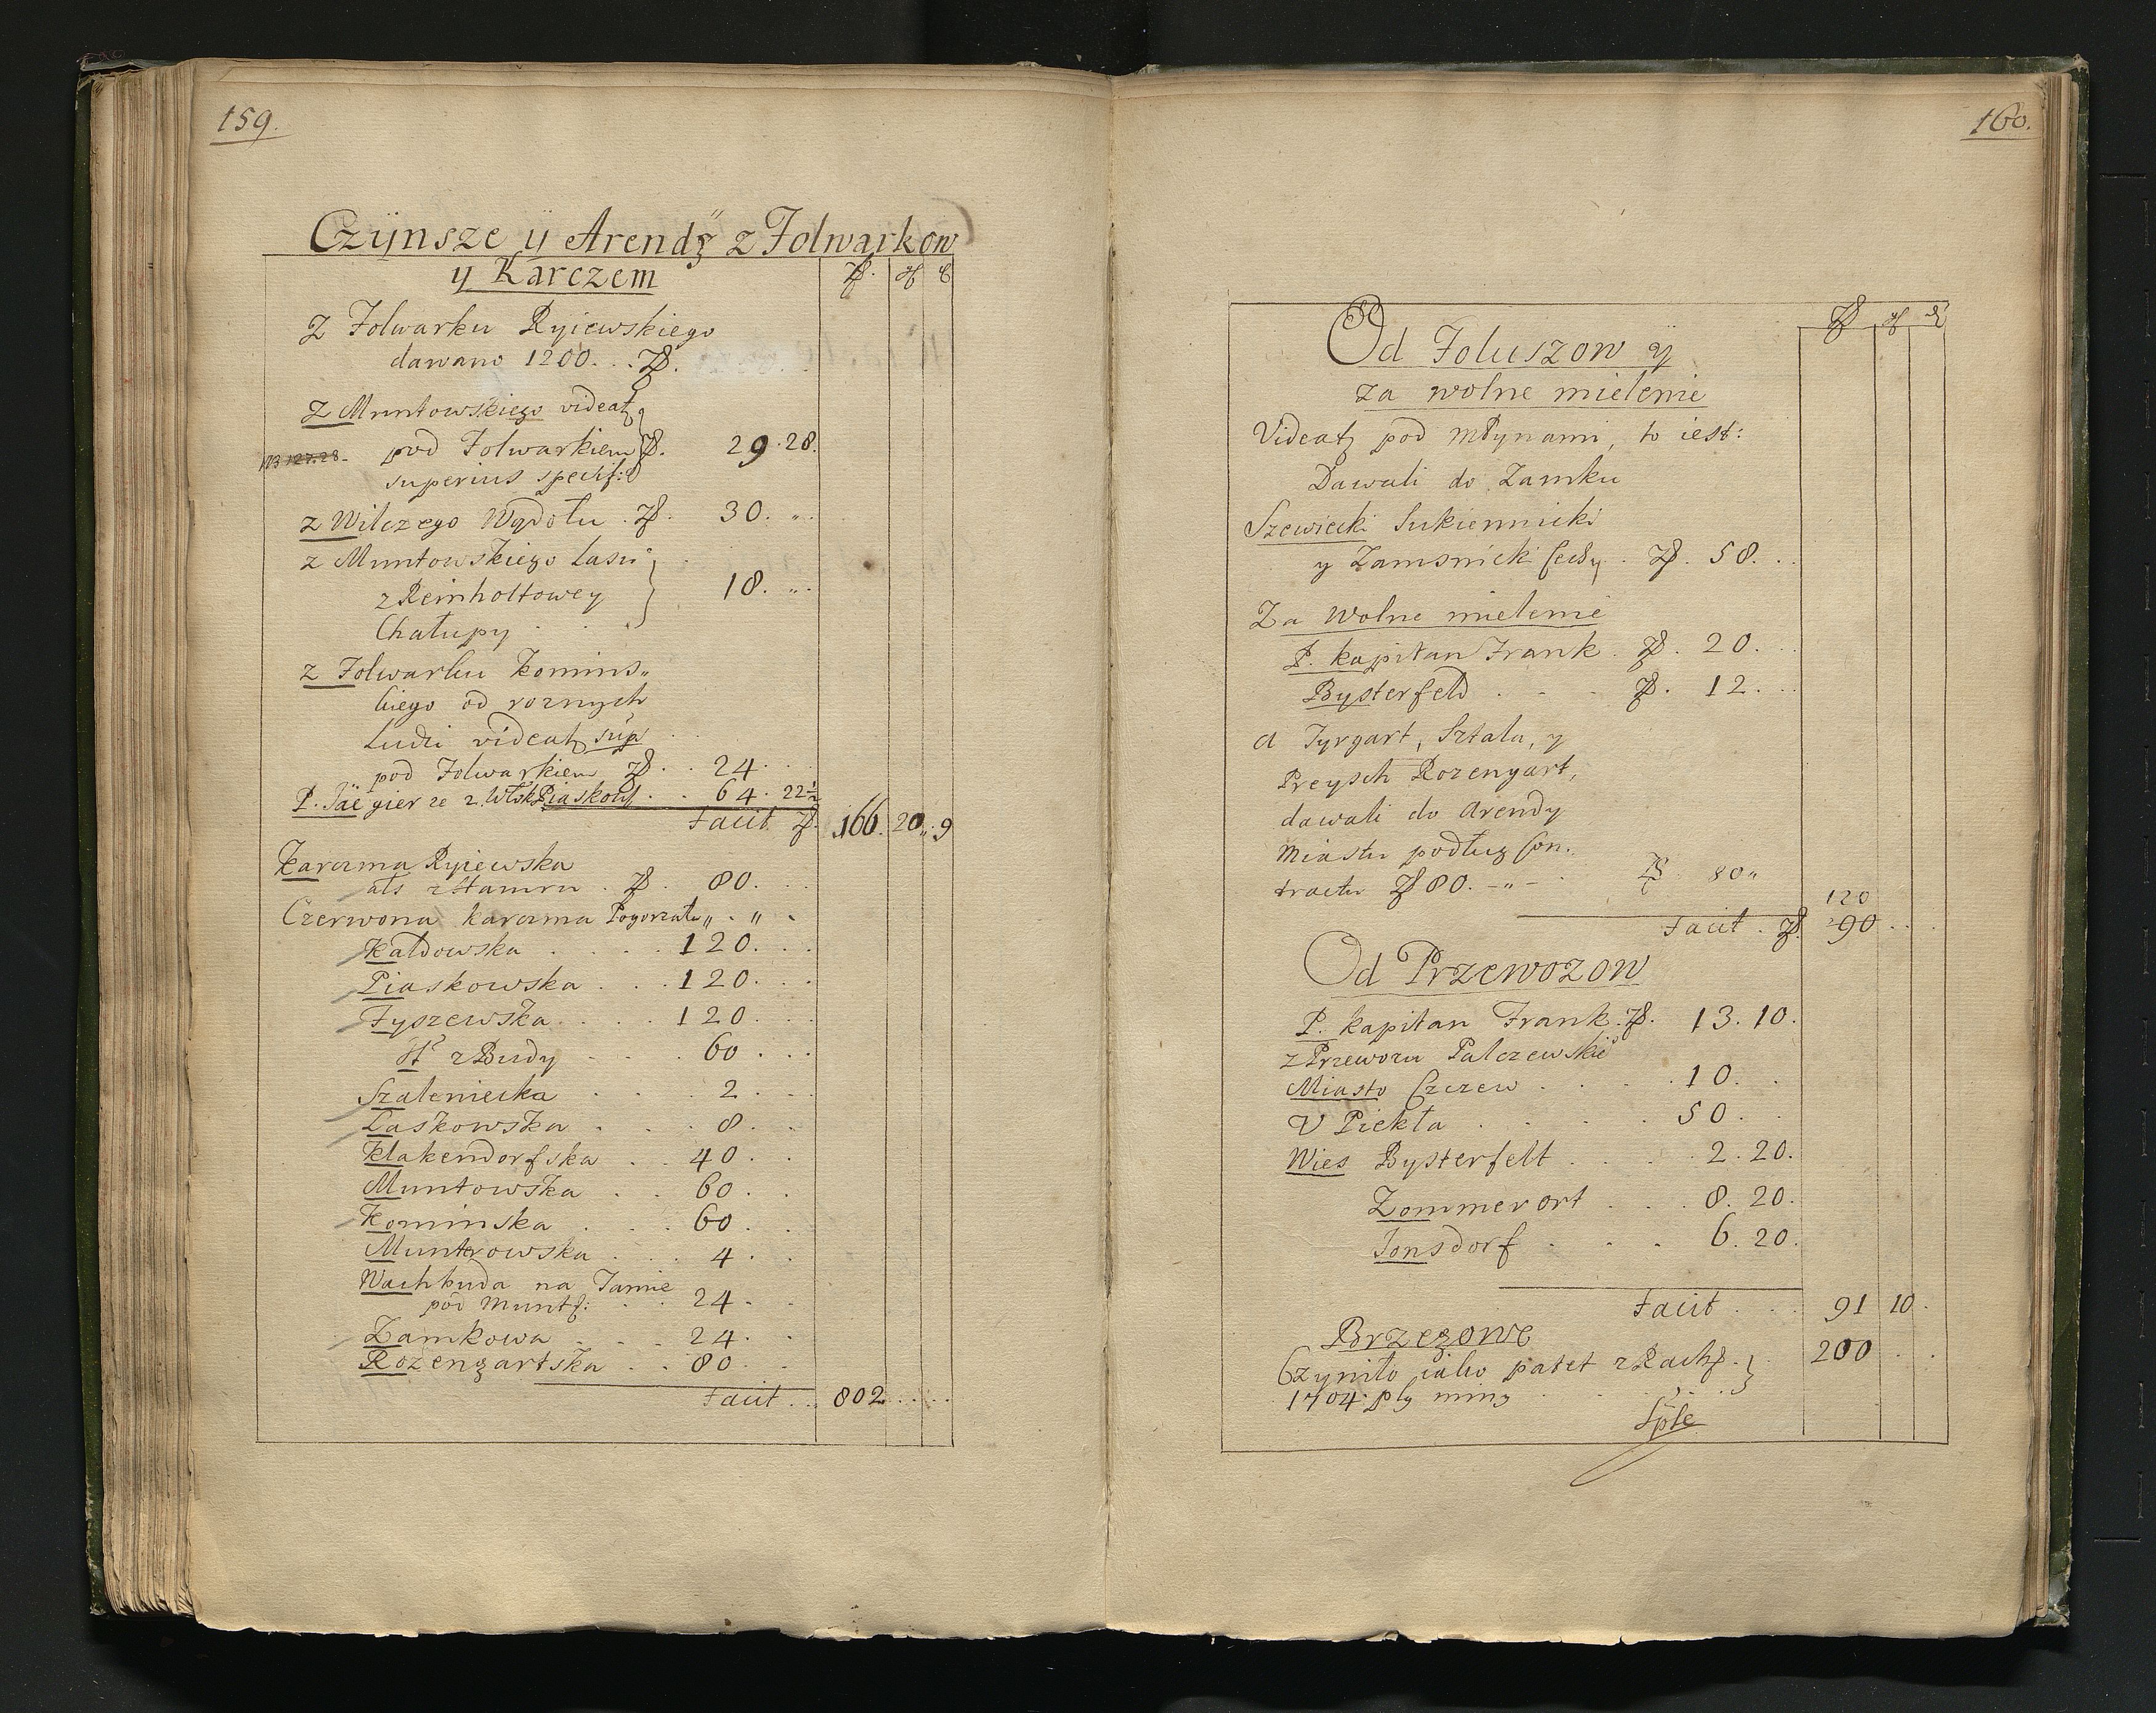 159.
Czÿnsze ÿ Arendÿ z Folwarkow
y Karczem
Z Folwarku Ryiewskiego
dawano 1200...
z Muntowskiego videatz
pod Folwarkiem 29.28.
superius specif:
z Wilczego Wądołu 30. „.
z Muntowskiego Lasu
z Reinholtowey 18. „.
Chałupy
z Folwarku Komins„
kiego od roznych
Ludzi videatz sup
pod Folwarkiem 24.
P. Jaegier ze 2. Włok Piaskow 64. 22½
Facit 166. 20 „. 9
Karczma Ryiewska
als z Hamru 80.
Czerwona karczma Pogorzała „ . „ .
Kałdowska 120.
Piaskowska 120.
Fyszewska 120.
z Budy 60.
Szaleniecka 2.
Laskowska 8.
Klakendorfska 40.
Muntowska 60.
Kominska 60.
Munterowska 4.
Wachbuda na Tamie
pod Muntf: 24.
Zamkowa 24.
Rozengartska 80.
Facit 802.
160.
Od Foluszow y
za wolne mielenie
Videatz pod Młynami, to iest:
Dawali do Zamku
Szewiecki Sukiennicki
y Zamsnicki Cechy 58.
Za Wolne mielenie
P. kapitan Frank 20.
Bysterfeld 12.
a Tyrgart, Sztala, y
Preysch Rozengart,
dawali do Arendy
Miastu podług Con.
tractu 80. -„- 80 „
120
Facit 290
Od Przewozow
P. kapitan Frank 13. 10.
z Przewozu Palczewskie
Miasto Czczew 10.
V Piekła 50.
Wies Bysterfelt 2. 20.
Zommerort 8. 20.
Jonsdorf 6. 20.
Facit 91 10.
Brzegowe
Czyniło iako patet z Rach 200
1704. pl9 min9